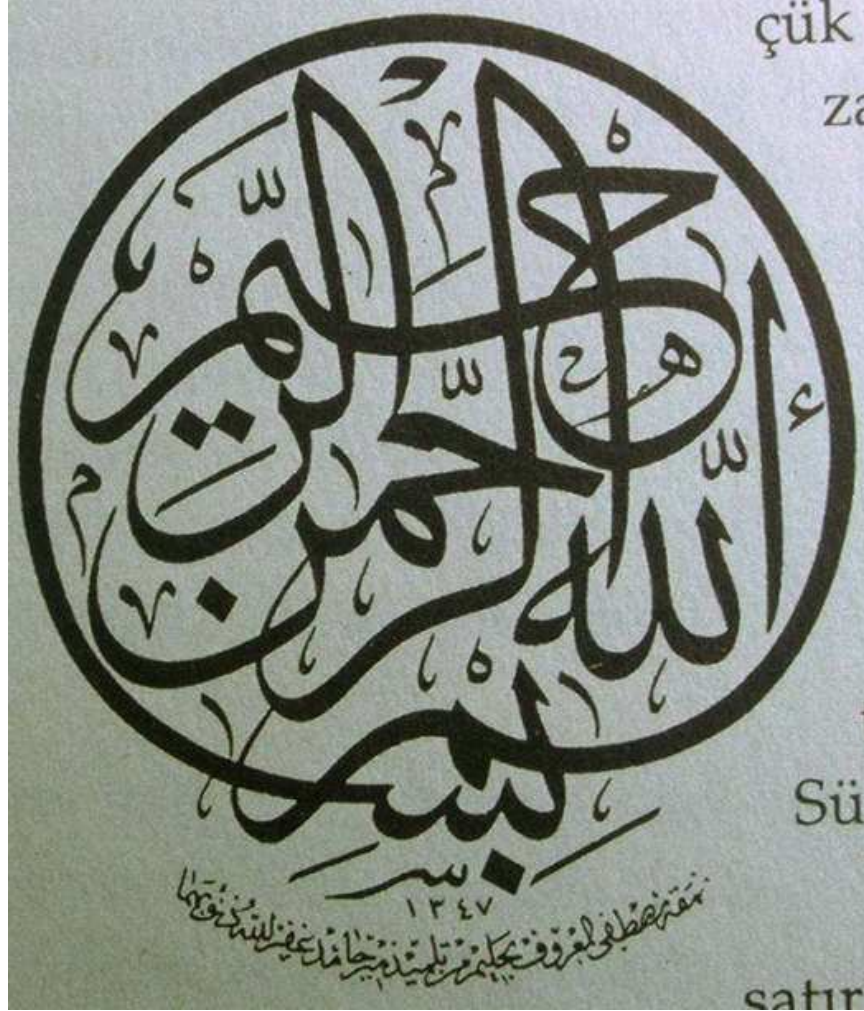 بسم الله الرحمن الرحيم
١٣٤٧
نمقه مصطفى المعروف بحليم من تلاميذ حامد غفر الله ذنوبهما
çük
za
Sü
satır